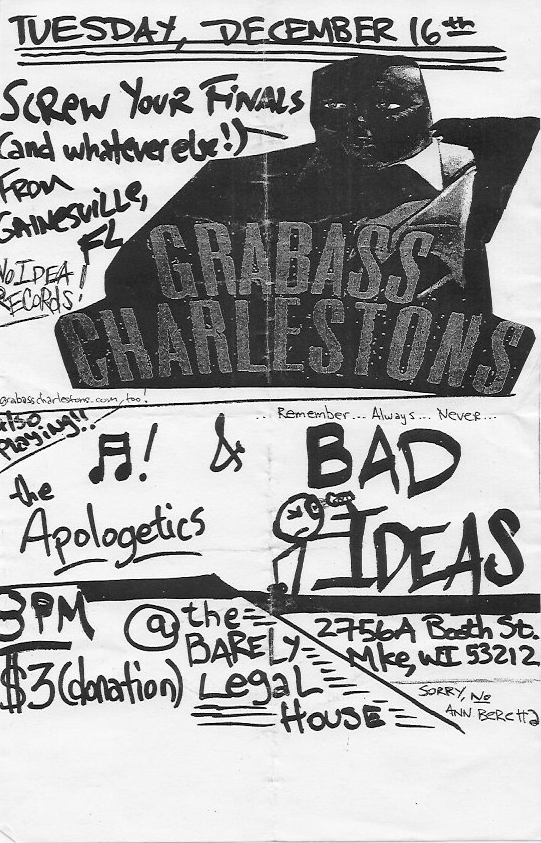 TUESDAY, DECEMBER 16th
SCREW YOUR FINALS
(and whatever else!)
FROM
GAINESVILLE,
FL
NO IDEA
RECORDS!
GRABASS
CHARLESTONS
grabasscharlestons.com, too!
also
playing!!
...Remember... Always... Never...
! &
BAD
IDEAS
the
Apologetics
8PM
$3 (donation)
@ the
BARELY
LEGAL
HOUSE
2756A Booth St.
Mke, WI 53212
SORRY, NO
ANN BERCHA